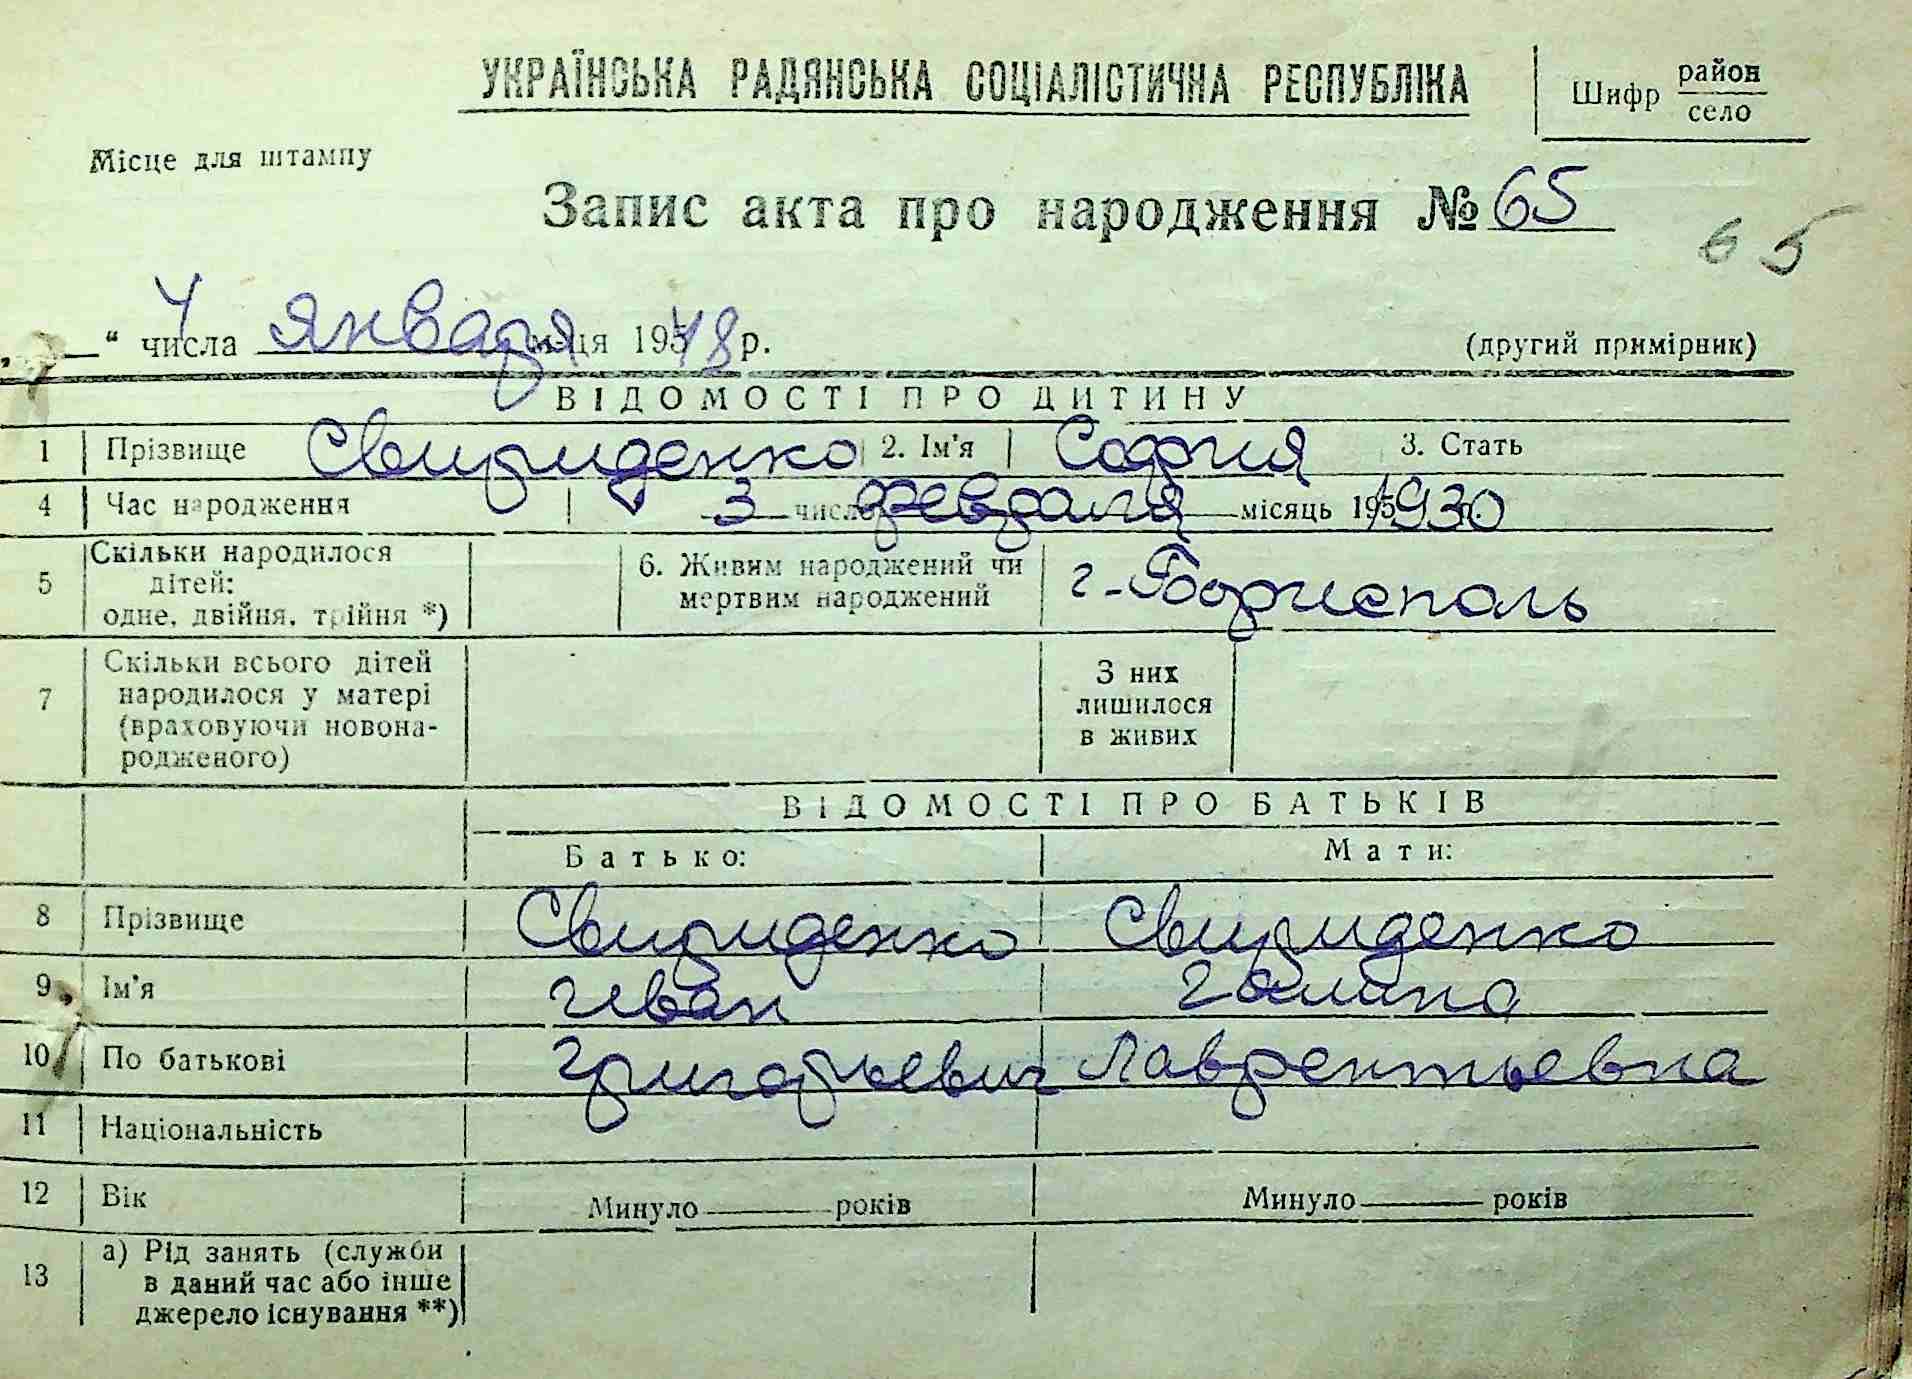 УКРАЇНСЬКА РАДЯНСЬКА СОЦІАЛІСТИЧНА РЕСПУБЛІКА
Шифр район
село
Місце для штампу
Запис акта про народження № 65
65
„ “ 4 числа января місяця 195 48 р.
(другий примірник)
ВІДОМОСТІ ПРО ДИТИНУ
1 Прізвище Свириденко 2. Ім'я София 3. Стать
4 Час народження 3 число февраля місяць 195 1930 р.
5 Скільки народилося дітей: одне, двійня, трійня *) 6. Живим народжений чи мертвим народжений г. Борисполь
7 Скільки всього дітей народилося у матері (враховуючи новона-родженого) З них лишилося в живих
ВІДОМОСТІ ПРО БАТЬКІВ
Батько: Мати:
8 Прізвище Свириденко Свириденко
9 Ім'я Иван Галина
10 По батькові Григорьевич Лаврентьевна
11 Національність
12 Вік Минуло років Минуло років
13 а) Рід занять (служби в даний час або інше джерело існування **)